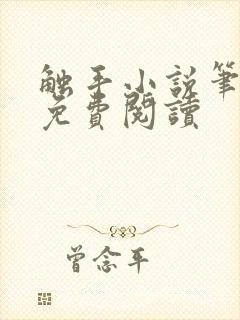 触手小说筆
免費閱讀
曾念平